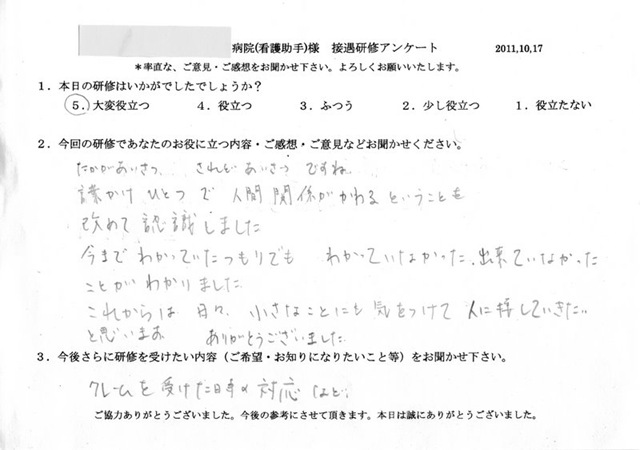 病院(看護助手)様　接遇研修アンケート　2011,10,17
＊率直な、ご意見・ご感想をお聞かせ下さい。よろしくお願いいたします。
１．本日の研修はいかがでしたでしょうか？
５．大変役立つ　４．役立つ　３．ふつう　２．少し役立つ　１．役立たない
２．今回の研修であなたのお役に立つ内容・ご感想・ご意見などお聞かせください。
たかがあいさつ、されどあいさつ ですね
言葉かけ ひとつ で 人間関係がかわる ということを
改めて 認識しました
今まで わかっていたつもりでも わかっていなかった、出来ていなかった
ことが わかりました
これからは 日々、小さなことにも 気をつけて 人に接していきたい
と思います　ありがとうございました
３．今後さらに研修を受けたい内容（ご希望・お知りになりたいこと等）をお聞かせ下さい。
クレームを 受けた時の 対応 など、
ご協力ありがとうございました。今後の参考にさせて頂きます。本日は誠にありがとうございました。